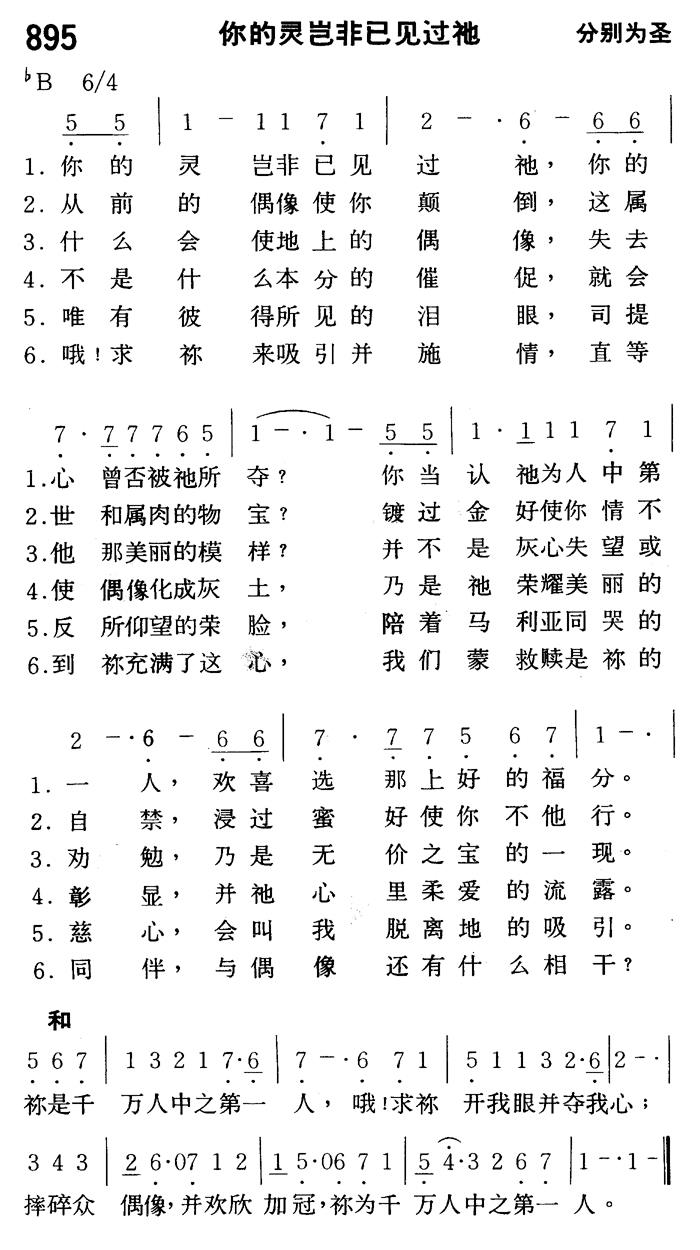 895 你的灵岂非已见过祂 分别为圣
♭B 6/4
5 5 | 1 - 1 1 7 1 | 2 - - · 6 - 6 6 |
1. 你的灵岂非已见过祂，你的
2. 从前的偶像使你颠倒，这属
3. 什么会使地上的偶像，失去
4. 不是什么本分的催促，就会
5. 唯有彼得所见的泪眼，司提
6. 哦！求祢来吸引并施情，直等
7 · 7 7 7 6 5 | 1 - · 1 - 5 5 | 1 · 1 1 1 7 1 |
1. 心曾否被祂所夺？你当认祂为人中第
2. 世和属肉的物宝？镀过金好使你情不
3. 他那美丽的模样？并不是灰心失望或
4. 使偶像化成灰土，乃是祂荣耀美丽的
5. 反所仰望的荣脸，陪着马利亚同哭的
6. 到祢充满了这心，我们蒙救赎是祢的
2 - · 6 - 6 6 | 7 · 7 7 5 6 7 | 1 - · |
1. 一人，欢喜选那上好的福分。
2. 自禁，浸过蜜好使你不他行。
3. 劝勉，乃是无价之宝的一现。
4. 彰显，并祂心里柔爱的流露。
5. 慈心，会叫我脱离地的吸引。
6. 同伴，与偶像还有什么相干？
和
5 6 7 | 1 3 2 1 7 · 6 | 7 - · 6 7 1 | 5 1 1 3 2 · 6 | 2 - · |
祢是千万人中之第一人，哦！求祢开我眼并夺我心；
3 4 3 | 2 6 · 0 7 1 2 | 1 5 · 0 6 7 1 | 5 4 · 3 2 6 7 | 1 - · 1 - ||
摔碎众偶像，并欢欣加冠，祢为千万人中之第一人。